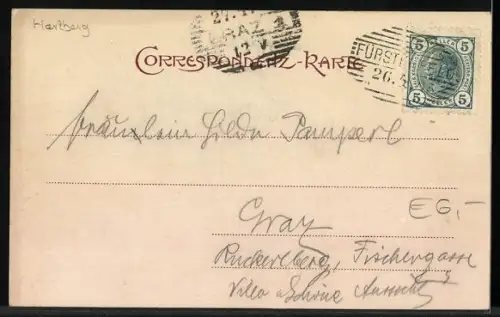 Hartberg
27.
GRAZ
12 V
CORRESPONDENZ-KARTE
FÜRST
26.
5 5
5 5
Fräulein Hilda Pamperl
E6,-
Graz
Ruckerlberg, Fischergasse
Villa Schöne Aussicht